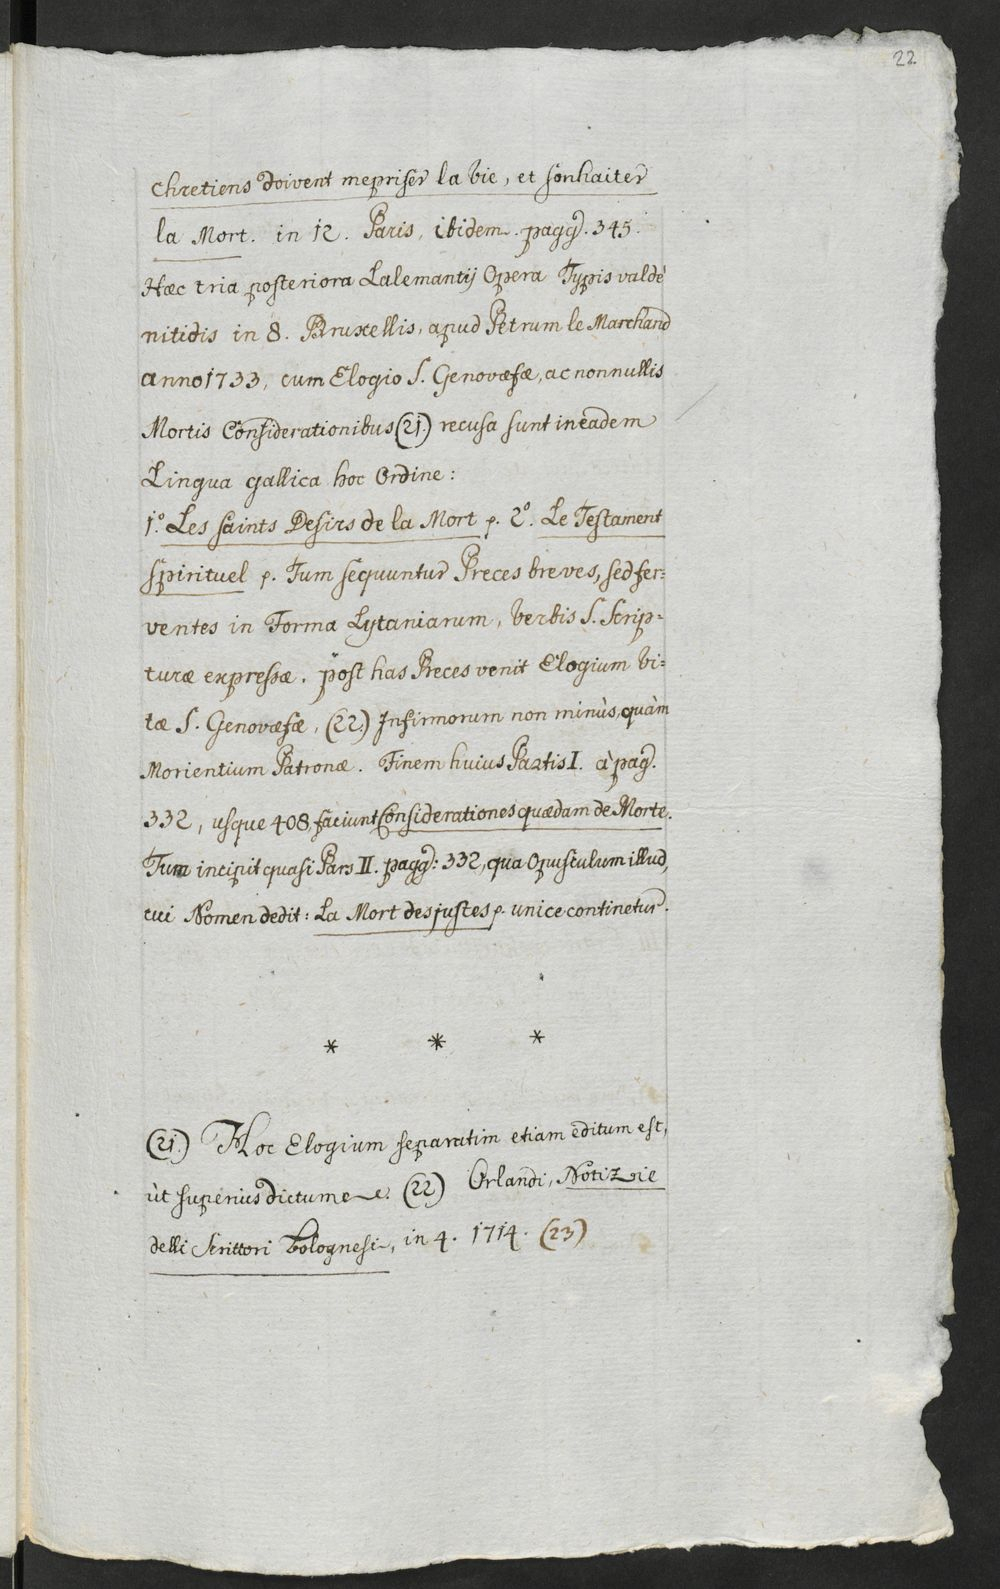 22
chretiens doivent mepriser la vie, et sonhaiter
la Mort. in 12. Paris, ibidem. pagg. 345.
Hæc tria posteriora Lalemantij Opera Typis valdè
nitidis in 8. Bruxellis, apud Petrum le Marchand
anno 1733, cum Elogio S. Genovefæ, ac nonnullis
Mortis Considerationibus (21.) recusa sunt in eadem
Lingua gallica hoc Ordine:
1.º Les saints Desirs de la Mort p. 2º. Le Testament
spirituel p. Tum sequuntur Preces breves, sed fer=
ventes in Forma Lytaniarum, verbis S. Scrip=
turæ expressæ. post has Preces venit Elogium vi=
tæ S. Genovefæ, (22.) Infirmorum non minùs, quàm
Morientium Patronæ. Finem huius Partis I. à pag.
332, usque 408, faciunt Considerationes quædam de Morte.
Tum incipit quasi Pars II. pagg: 332, qua Opusculum illud,
cui Nomen dedit: La Mort des justes p. unice continetur.
* * *
(21.) Hoc Elogium separatim etiam editum est,
ùt superius dictum e. (22) Orlandi, Notizie
delli Scrittori bolognesi, in 4. 1714. (23)